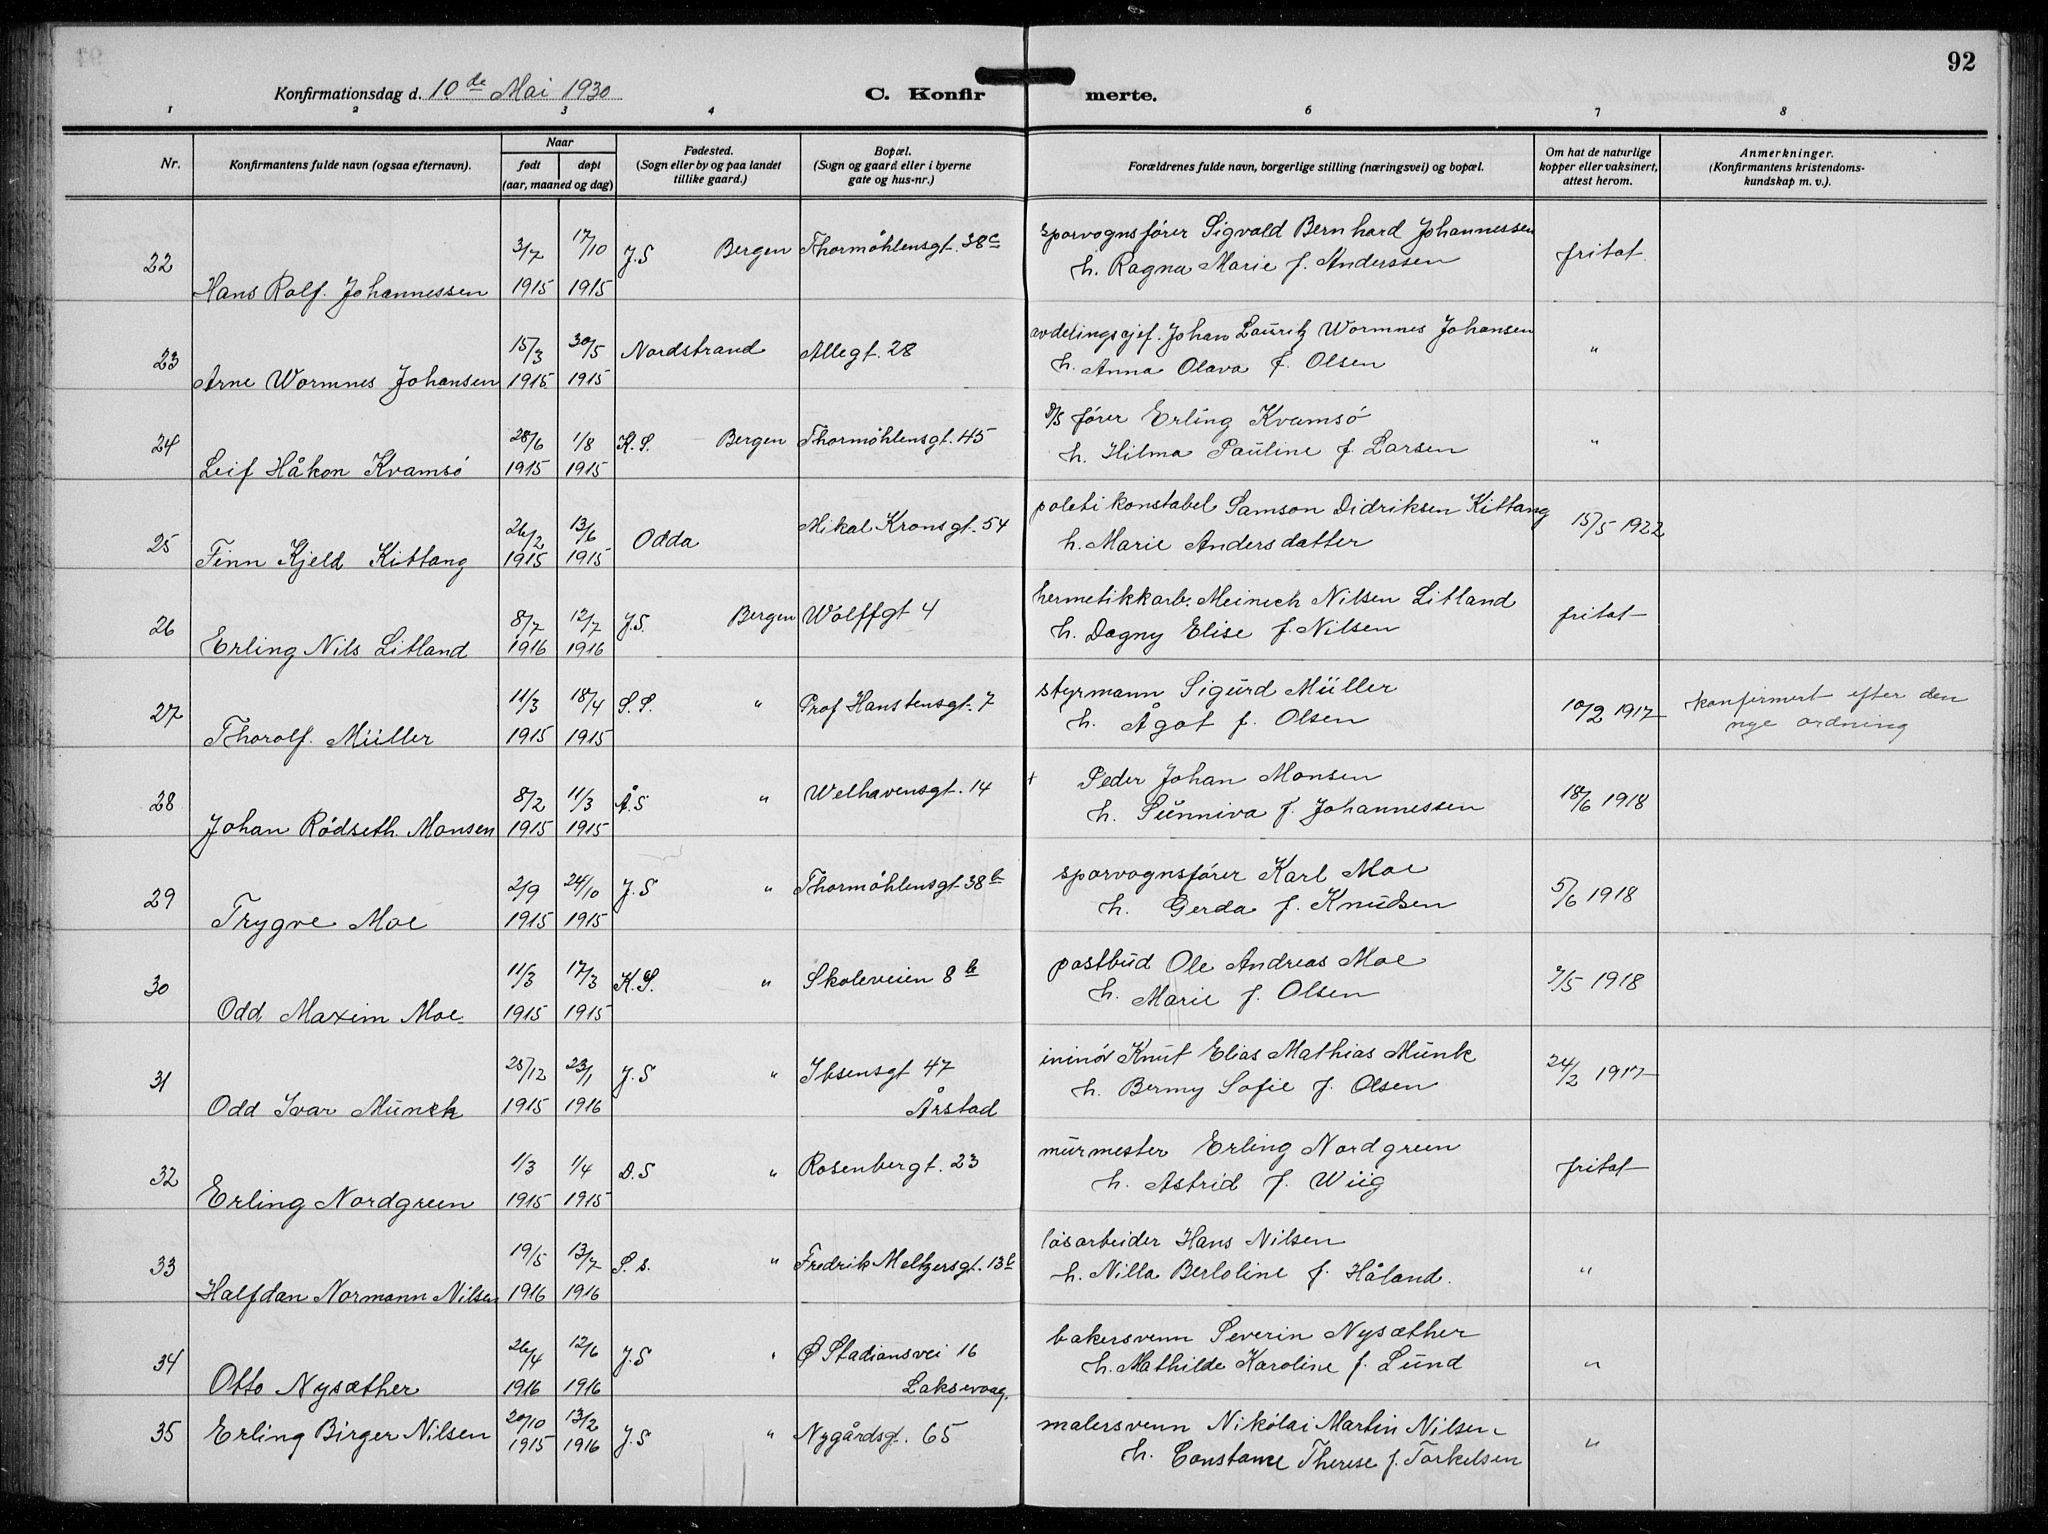 92
Konfirmationsdag d. 10de Mai 1930
C. Konfirmerte.
1 2 3 4 6 7 8
Nr.
Konfirmantens fulde navn (ogsaa efternavn).
Naar
født døpt
(aar, maaned og dag)
Fødested.
(Sogn eller by og paa landet
tillike gaard.)
Bopæl.
(Sogn og gaard eller i byerne
gate og hus-nr.)
Forældrenes fulde navn, borgerlige stilling (næringsvei) og bopæl.
Om hat de naturlige
kopper eller vaksinert,
attest herom.
Anmerkninger.
(Konfirmantens kristendoms-
kundskap m. v.).
22 3/7 17/10 J.S Bergen Thormøhlensgt. 38c sporvognsfører Sigvald Bernhard Johannessen fritat
Hans Rolf. Johannessen 1915 1915 h. Ragna Marie f. Anderssen
23 15/3 30/5 Nordstrand Allegt. 28 avdelingssjef. Johan Lauritz Wormnes Johansen "
Arne Wormnes Johansen 1915 1915 h. Anna Olava f. Olsen
24 28/6 1/8 K.S. Bergen Thormøhlensgt. 45 D/S fører Erling Kvamsø "
Leif Håkon Kvamsø 1915 1915 h. Hilma Pauline f Larsen
25 26/2 13/6 Odda Mikal Kronsgt. 54 politikonstabel Samson Didriksen Kittang 15/5 1922
Finn Kjeld Kittang 1915 1915 h. Marie Andersdatter
26 8/7 12/7 J.S. Bergen Wolffgt 4 hermetikkarb. Meinich Nilsen Litland fritat
Erling Nils Litland 1916 1916 h. Dagny Elise f. Nilsen
27 11/3 18/4 S.S. " Prof Hanstensgt. 7 styrmann Sigurd Müller 10/2 1917 konfirmert efter den
Thorolf. Müller 1915 1915 h. Ågot f. Olsen nye ordning
28 8/2 11/3 Å.S " Welhavensgt. 14 + Peder Johan Monsen 18/6 1918
Johan Rødseth Monsen 1915 1915 h. Sunniva f. Johannessen
29 2/9 24/10 J.S " Thormøhlensgt. 38b sporvognsfører Karl Moe 5/6 1918
Trygve Moe 1915 1915 h. Gerda f. Knudsen
30 11/3 17/3 K.S. " Skoleveien 8b postbud Ole Andreas Moe 7/5 1918
Odd Maxim Moe 1915 1915 h. Marie f. Olsen
31 25/12 23/1 J.S " Ibsensgt 47 Knut Elias Mathias Munk 24/2 1917
Odd Ivar Munck 1915 1916 Årstad h. Bermy Sofie f. Olsen
32 1/3 1/4 D.S " Rosenbergt. 23 murmester Erling Nordgreen fritat
Erling Nordgreen 1915 1915 h. Astrid f. Wiig
33 19/5 13/7 S.s. " Fredrik Meltzersgt. 13b løsarbeider Hans Nilsen "
Halfdan Normann Nilsen 1916 1916 h. Nilla Bertoline f. Håland.
34 26/4 12/6 J.S " Ø Stadionsvei 16 bakersvenn Severin Nysæther "
Otto Nysæther 1916 1916 Laksevaag. h. Mathilde Karoline f. Lund
35 Erling Birger Nilsen 20/10 1915 13/2 1916 J.S " Nygårdsg. 65 malersvenn Nikolai Martin Nilsen "
h. Constance Therese f. Torkelsen